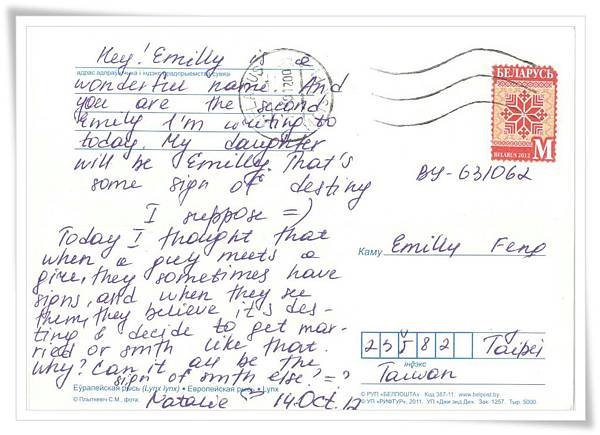 Hey! Emilly is a
адрас адпраўшчыка і індэкс прадпрыемства сувязі
wonderful name. And
you are the second
Emily I'm writing to
today. My daughter
will be Emilly. That's
some sign of destiny
I suppose =)
Today I thought that
when a guy meets a
girl, they sometimes have
signs, and when they see
them, they believe it's des-
ting & decide to get mar-
ried or smth like that.
Why? Can it all be the
sign of smth else? =?
Еўрапейская рысь (Lynx lynx) • Европейская рысь • Lynx
© Плыткевич С.М., фота
Natalie 14 Oct. 12
БЕЛАРУСЬ
BELARUS 2012 M
BY-631062
Каму Emilly Feng
23582 Taipei
індэкс
Taiwan
© РУП «БЕЛПОШТА» Код 367-11 www.belpost.by
© УП «РИФТУР», 2011. УП «Джи энд Ди». Зак. 1257. Тыр. 5000.